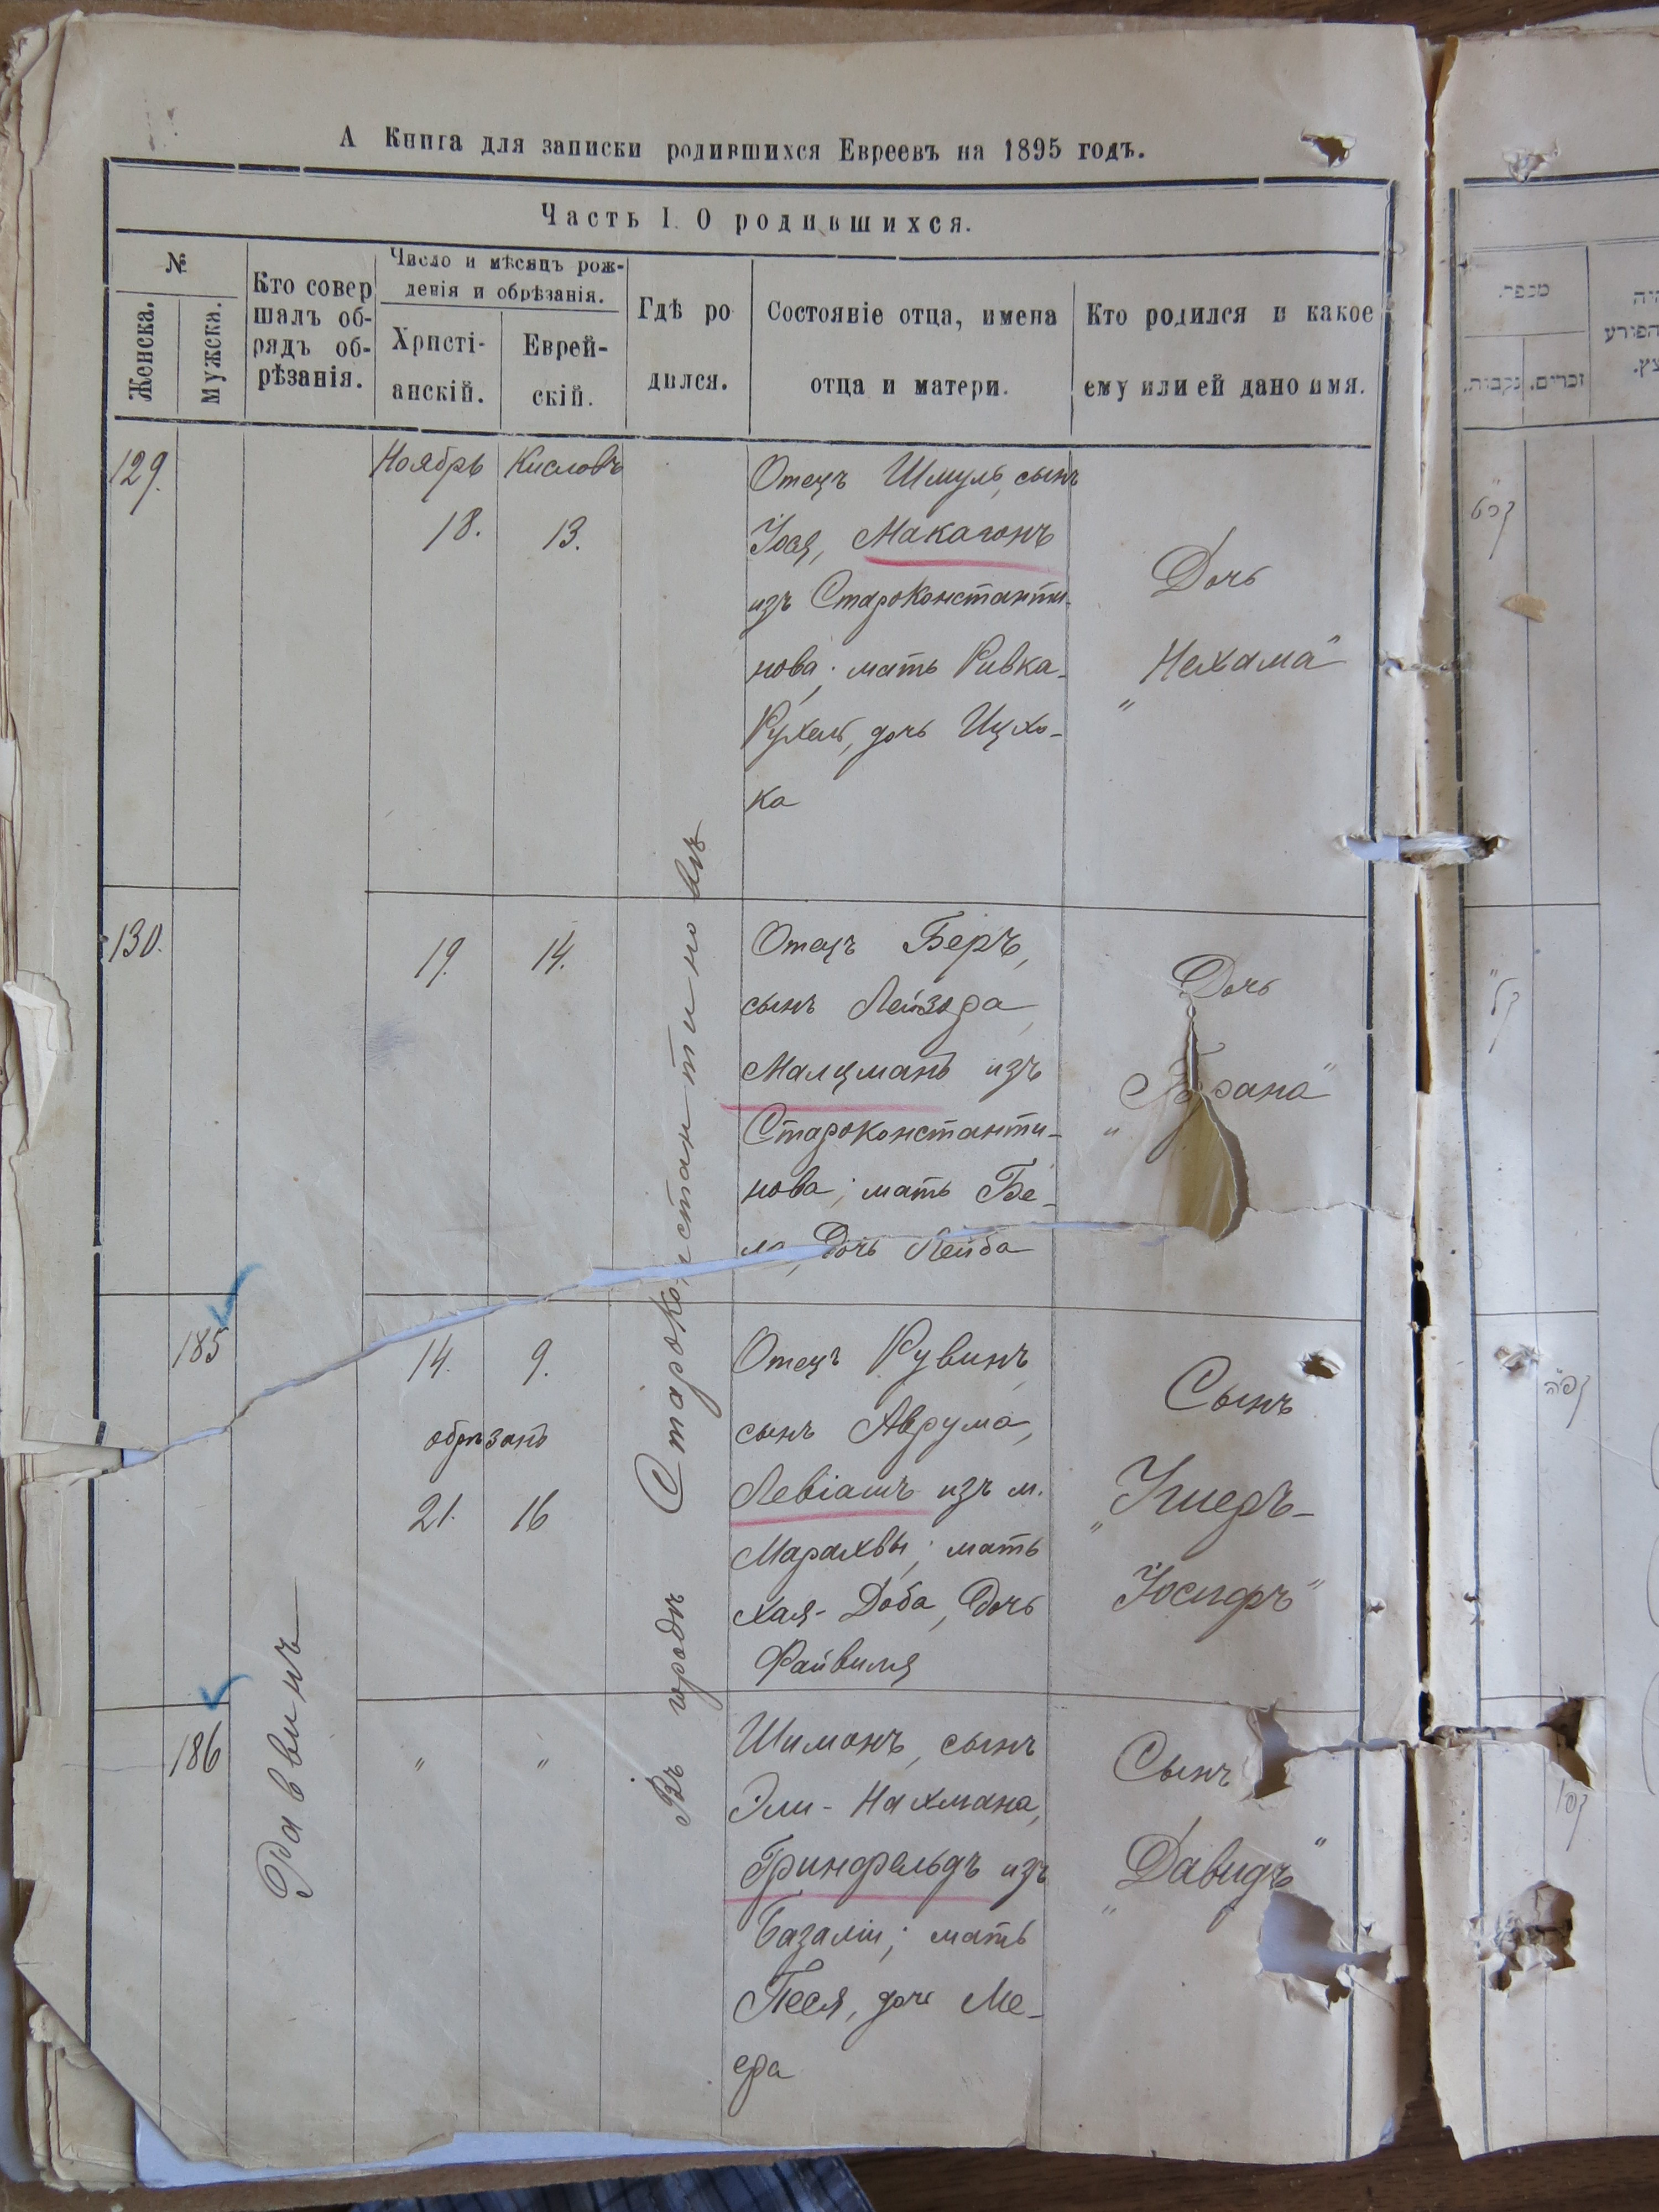 А Книга для записки родившихся Евреевъ на 1895 годъ.
Часть I. О родившихся.
№
Женска.
Мужска.
Кто совер
шалъ об-
рядъ об-
рѣзанія.
Число и мѣсяцъ рож-
денія и обрѣзанія.
Христі-
анскій.
Еврей-
скій.
Гдѣ ро
дился.
Состояніе отца, имена
отца и матери.
Кто родился и какое
ему или ей дано имя.
129.
Ноябрь
18.
Кисловъ
13.
Отецъ Шмуль, сынъ
Іося, Макагонъ
изъ Староконстанти-
нова; мать Ривка-
Рухель, дочь Ицхо-
ка
Дочь
„Нехама"
130.
19.
14.
Отецъ Беръ,
сынъ Лейзора,
Малцманъ изъ
Староконстанти-
нова; мать Бе-
ла, дочь Лейба
Дочь
185
14.
9.
обрѣзанъ
21.
16
Отецъ Рувинъ,
сынъ Аврума,
Левіашъ изъ м.
Марахвы; мать
Хая-Доба, дочь
Файвиля
Сынъ
Іосифъ"
186
"
"
Шимонъ, сынъ
Эли-Нахмана,
Гринфельдъ изъ
Базаліи; мать
Песя, дочь Ме-
ера
Сынъ
„Давидъ"
Раввинъ
Въ городѣ Староконстантиновѣ
מספר.
נקבות.
זכרים.
קכט
קל
קפה
קפו